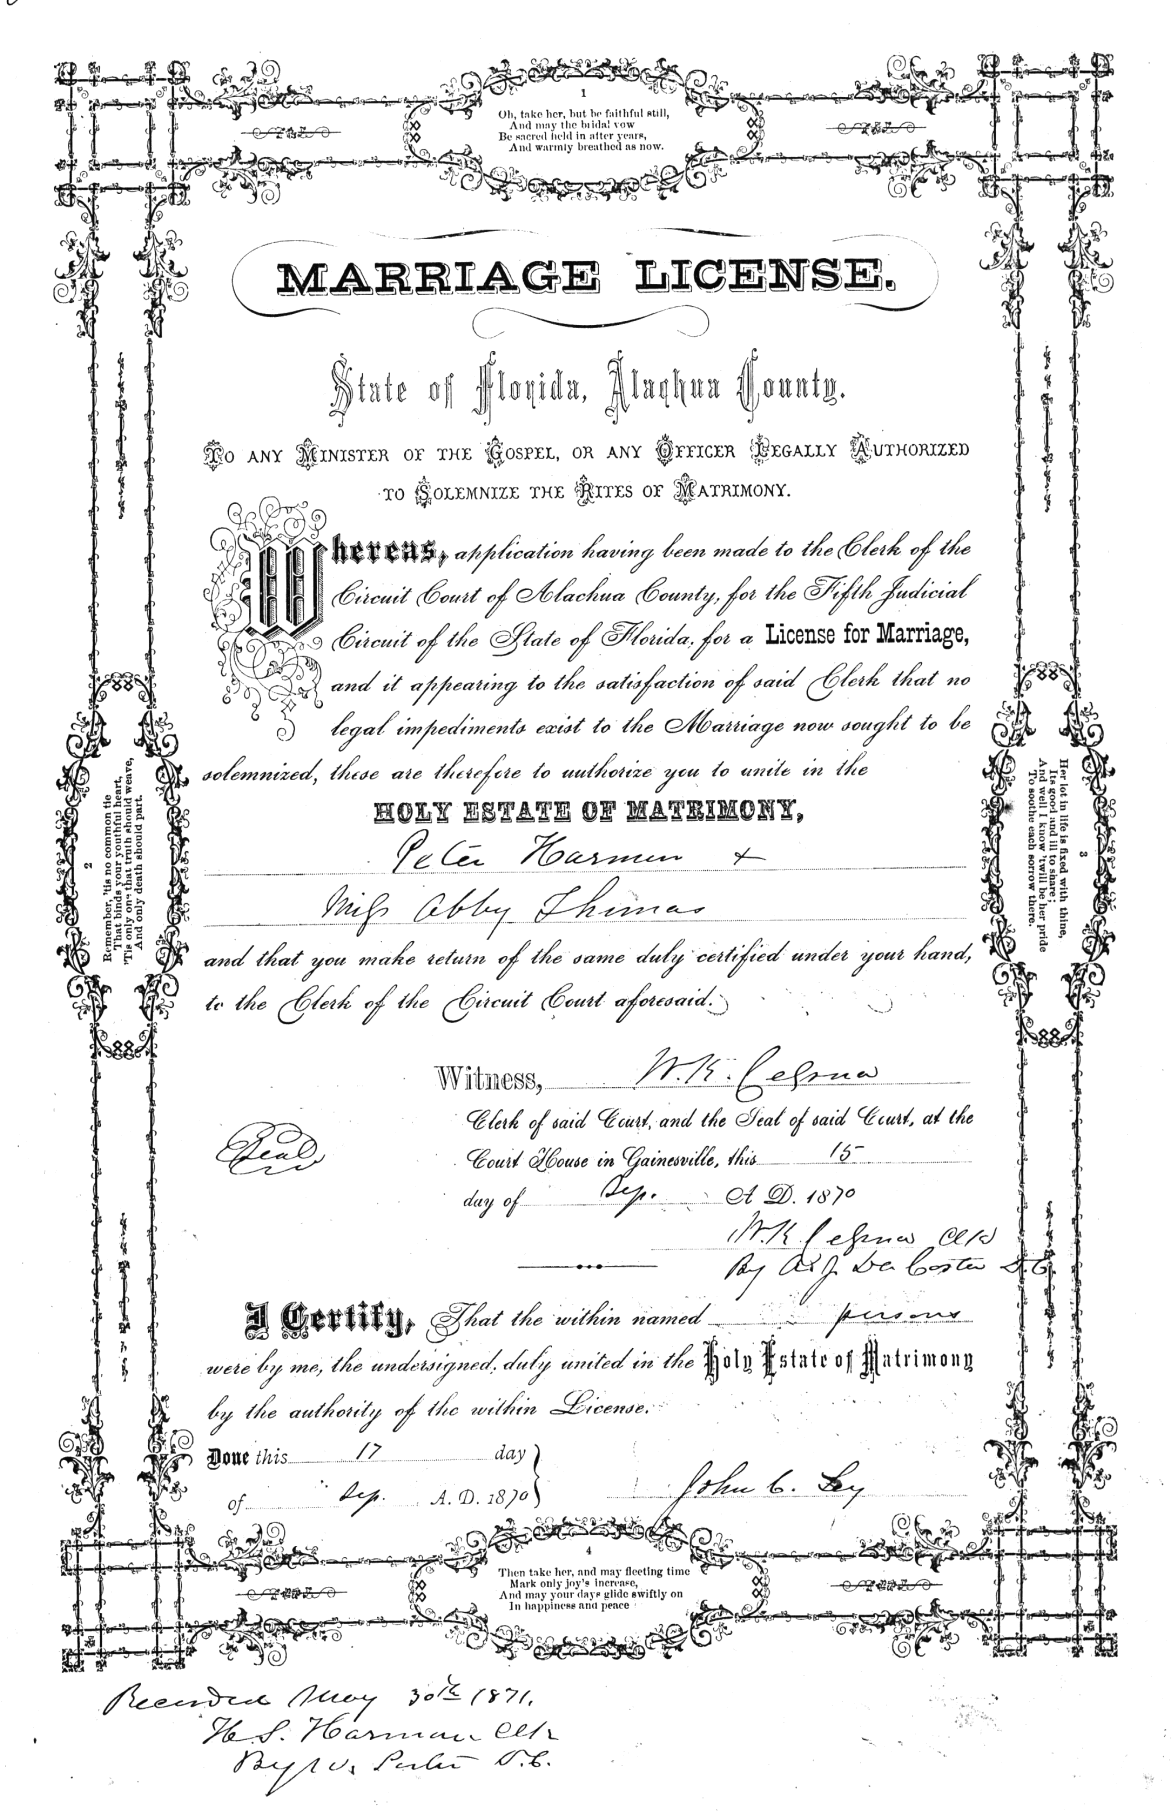 1
Oh, take her, but be faithful still,
And may the bridal vow
Be sacred held in after years,
And warmly breathed as now.
MARRIAGE LICENSE.
State of Florida, Alachua County.
TO ANY MINISTER OF THE GOSPEL, OR ANY OFFICER LEGALLY AUTHORIZED
TO SOLEMNIZE THE RITES OF MATRIMONY.
Whereas, application having been made to the Clerk of the
Circuit Court of Alachua County, for the Fifth Judicial
Circuit of the State of Florida, for a License for Marriage,
and it appearing to the satisfaction of said Clerk that no
legal impediments exist to the Marriage now sought to be
solemnized, these are therefore to authorize you to unite in the
HOLY ESTATE OF MATRIMONY,
Peter Harmon +
Miss Abby Thomas
and that you make return of the same duly certified under your hand,
to the Clerk of the Circuit Court aforesaid.
Witness, W. K. Cessna
Clerk of said Court, and the Seal of said Court, at the
Court House in Gainesville, this 15
day of Sep. A D. 1870
Seal
W. K Cessna Clk
By A J Da Costa D.C.
I Certify, That the within named persons
were by me, the undersigned, duly united in the Holy Estate of Matrimony
by the authority of the within License.
Done this 17 day
of Sep. A. D. 1870
John C. Ley
2
Remember, 'tis no common tie
That binds your youthful heart,
'Tis only one that truth should weave,
And only death should part.
3
Her lot in life is fixed with thine,
Its good and ill to share;
And well I know 'twill be her pride
To soothe each sorrow there.
4
Then take her, and may fleeting time
Mark only joy's increase,
And may your days glide swiftly on
In happiness and peace
Recorded May 30th 1871.
H. S. Harmon Clk
By D.C.